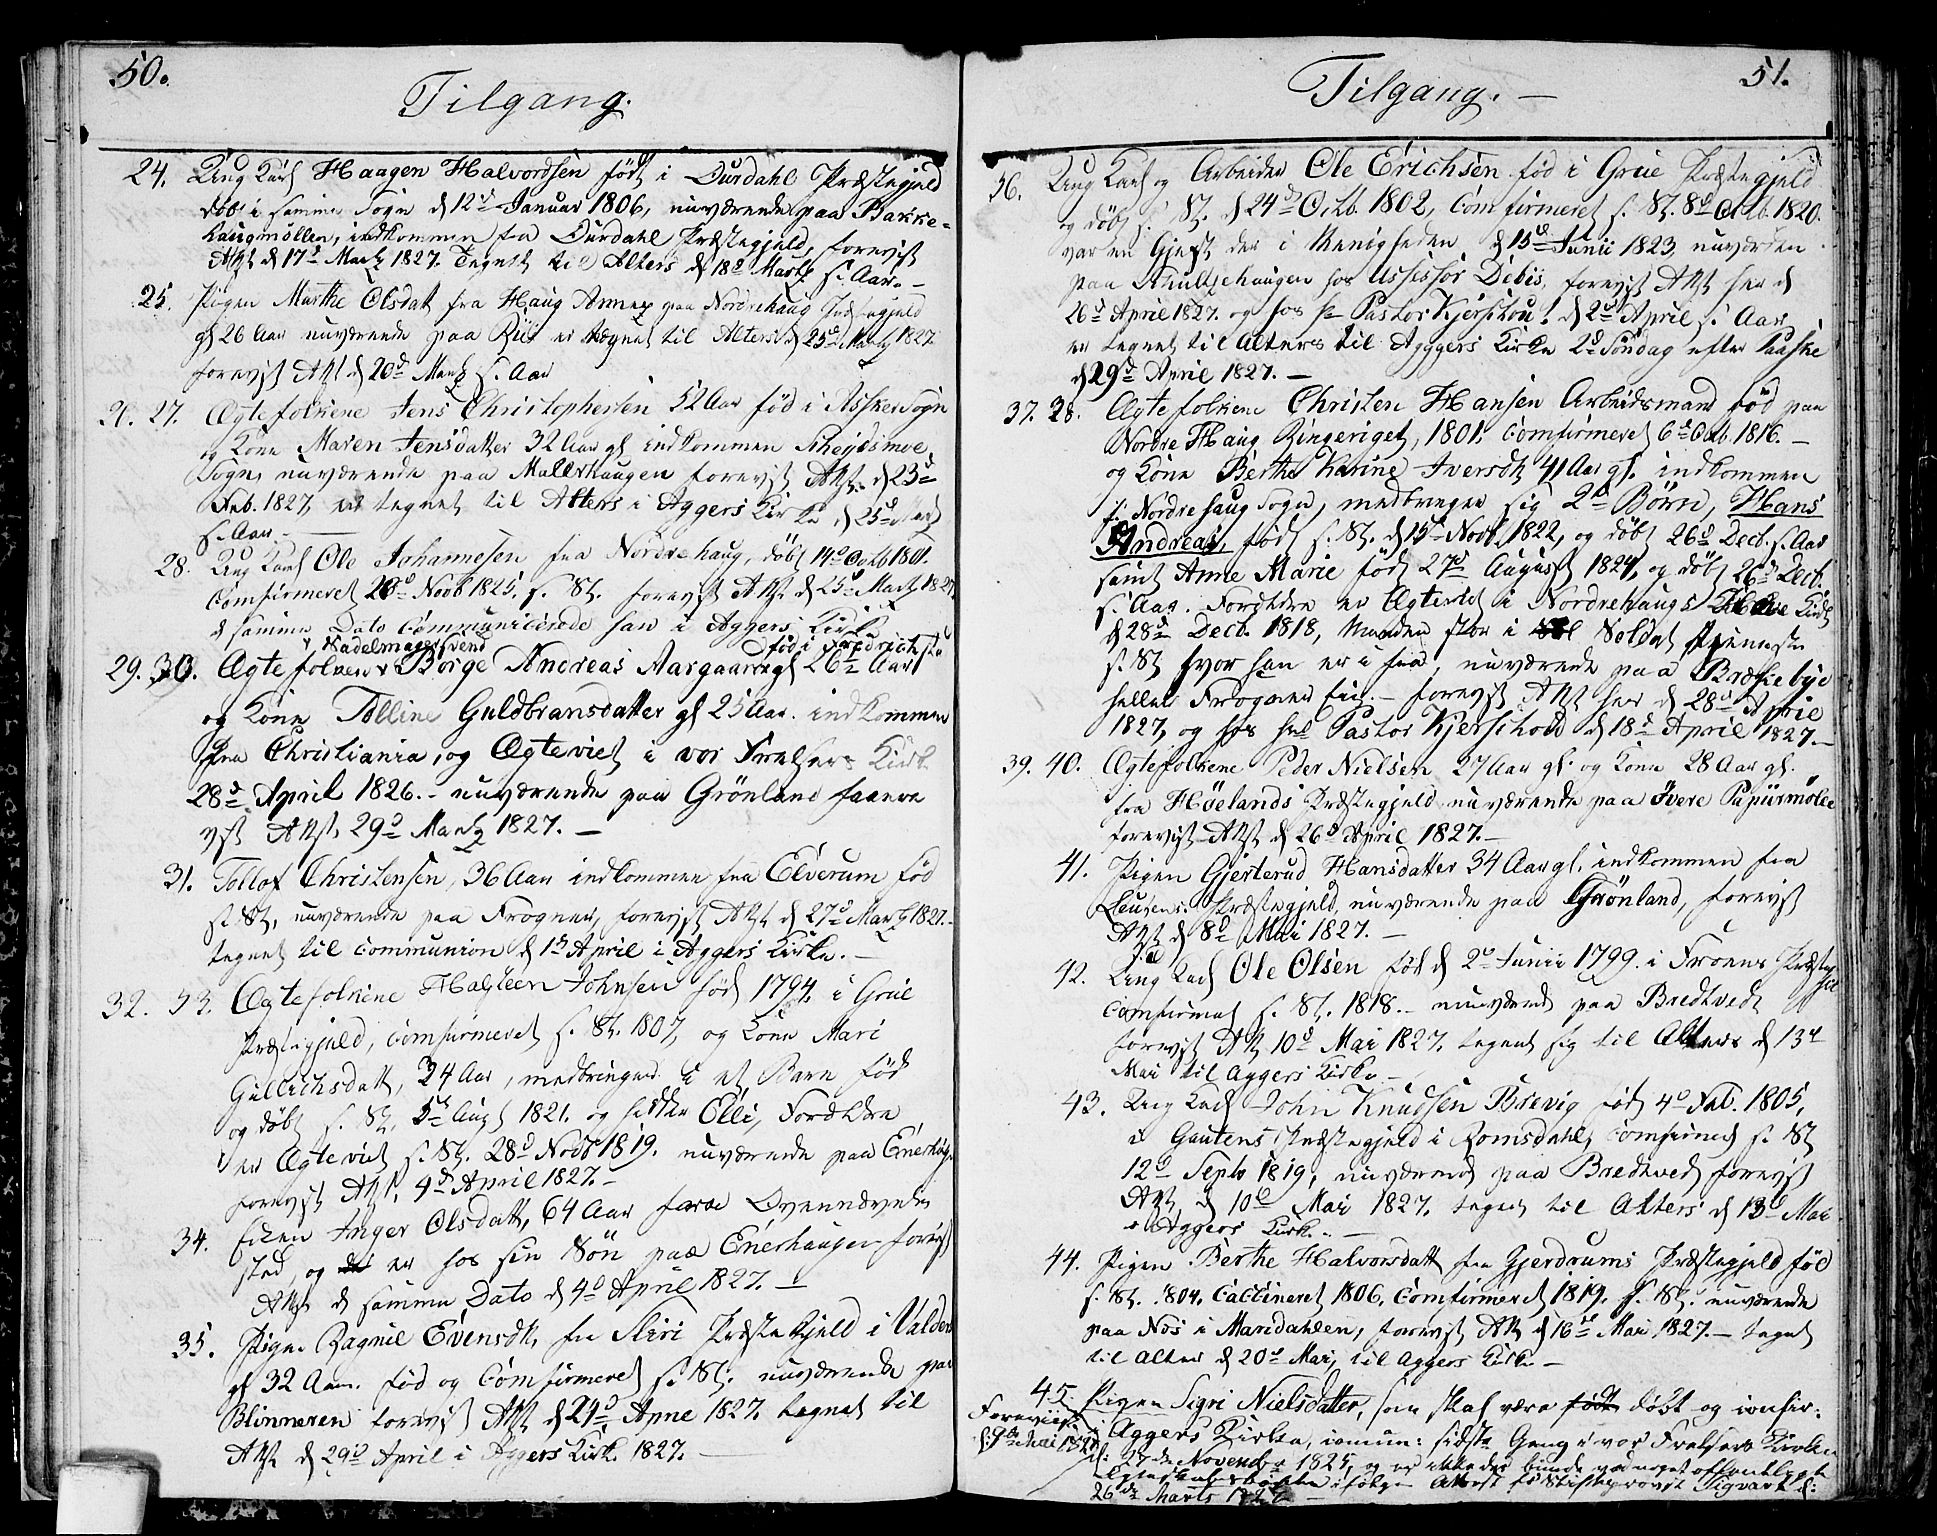 50.
Tilgang.
24. Ung Karl Haagen Halvordsen født i Ourdahl Præstegjeld
døbt i samme Sogn d 12d Januar 1806, nuværende paa Bakke-
haugmøllen, indkommen fra Ourdahl Præstegjeld, forevist
Att d 17d Martz 1827. Tegnet til Alters d 18d Martz s. Aar. –
25. Pigen Marthe Olsdat fra Haug Annex paa Nordrehaug Præstegjeld
gl 26 Aar nuværende paa Riis er tegnet til Alters d 25d Martz 1827
forevist Att d 20d Martz s. Aar
26. 27. Ægtefolkene Jens Christophersen 52 Aar fød i Asker Sogn
og Kone Maren Jensdatter 32 Aar gl indkommen
Sogn, nuværende paa Møllerhaugen forevist Att. d 23d
Feb. 1827, er tegnet til Alters i Aggers Kirke d 25d Martz
s. Aar. –
28. Ung Karl Ole Johannesen fra Nordrehaug, døbt 14d Octb 1801.
Comfirmeret 20d Novb 1825, s. St. forevist Att d 25d Martz 1827,
d samme Dato Communicerede han i Aggers Kirke
Nadelmagersvend fød i Fredrichsta
29. 30. Ægtefolkene Borge Andreas Aargaard gl 26 Aar
og Kone Tolline Guldbransdatter gl 25 Aar. indkommen
fra Christiania, og Ægteviet i vor Frelsers Kirke
28d April 1826. – nuværende paa Grønland forevi
yst Att. 29d Martz 1827. –
31. Tollof Christensen, 36 Aar indkommen fra Elverum fød
s. St, nuværende paa Frogner, forevyst Att d 27d Martz 1827. –
tegnet til Communion d 1st April i Aggers Kirke. –
32. 33. Ægtefolkene Halsteen Johnsen fød 1794. i Grue
Præstegjeld, comfirmeret s. St. 1807, og Kone Mari
Gullichsdatt, 34 Aar, medbringend i et Barn fød
og døbt s. St. 5d Augt 1821. og hedder Elli, Forældre
er Ægteviet s. St. 28d Novb 1819. nuværende paa Enerhaug
forevist Att. 4d April 1827. –
34. Enken Inger Olsdatt, 64 Aar fra Ovennævnte
sted, og er hos sin Søn paa Enerhaugen forevist
Att d samme Dato d 4d April 1827. –
35. Pige Ragnil Evensdt, fra Sliri Præstegjeld i Valders
gl 32 Aar. fød og Comfirmeret s. St. nuværende paa
Blinneren forevist Att d 24d April 1827. tegnet til
Att. d 29d April i Aggers Kirke 1827. –
51.
Tilgang. –
36. Ung Karl og Arbeider Ole Erichsen fød i Grue Præstegjeld
og døbt s. St. d 24d Octb. 1802, Comfirmeret s. St. 8d Octb. 1820.
var en Gjest der i Menigheden d 15d Junii 1823, nuværden
paa Schultzehaugen hos Assessor Debis, forevist Att her d
26d April 1827. og hos Hr Pastor Kjerschou! d 2d April s. Aar
er tegnet til Alters til Aggers Kirke 2d Søndag efter Paaske
d 29d April 1827. –
37. 38. Ægtefolkene Christen Hansen Arbeidsmand fød paa
Nordre Haug Ringeriget, 1801. Comfirmeret 6d Octb. 1816. –
og Kone Berthe Karine Iversdt 41 Aar gl. indkommen
f: Nordrehaug Sogn, medbringer sig 2d Børn, Hans
Andreas, født s. St. d 15d Novb 1822, og døbt 26d Dec. s. Aar
samt Anne Marie født 27d August 1824, og døbt 26d Dec.
s. Aar. Forældre er Ægteviet i Nordrehaugs Kirke
d 28d Decb. 1818, Manden stor i Soldat tjeneste
s. St hvor han er i fra, nuværende paa Bræskebye
heller Frogner Eie. – forevist Att her d 28d April
1827, og hos hr Pastor Kjerschou d 18d April 1827. –
39. 40. Ægtefolkene Peder Nielsen 27 Aar gl. og Kone 28 Aar gl.
fra Høelands Præstegjeld nuværende paa Øvere Papiirmølle
forevist Att d 26d April 1827. –
41. Pigen Gjerterud Hansdatter 34 Aar gl. indkommen fra
Præstegjeld, nuværende paa Grønland, forevist
Att d 8d Mai 1827. –
42. Ung Karl Ole Olsen fød d 2d Junii 1799. i Froens Præstegjel
Comfirmet s. St. 1818. – nuværende paa Bredtvedt
forevist Att 10d Mai 1827, tegnet sig til Alters d 13d
Mai til Aggers Kirke –
43. Ung Karl John Knudsen Brevig fød 4d Feb. 1805,
i Gautens Præstegjeld i Romsdahl, Comfirmed s. St
12d Septb 1819, nuværend paa Bredtved forevist
Att d 10d Mai 1827, tegnet til Alters d 13d Mai
i Aggers Kirke. –
44. Pigen Berthe Halvorsdatt fra Gjerdrums Præstegjeld fød
s. St. 1804. Vaccineret 1806, Comfirmeret 1819. s. St. nuværende
paa Nos i Maridahlen, forevist Att d 16d Mai 1827. – tegnet
til Alter d 20d Mai, til Aggers Kirke –
45. Pigen Sigri Nielsdatter, som skal være født døbt og confir:
Foreviist i Aggers Kirke, comun: sidste Gang i vor Frelsers Kirke
d: 9de Mai 1827 d: 27de November 1825, og er ikke bunde ved noget offentligt
Egteskabsløfte ifølge Attest fr Stiftsprovst Sigvart d:
26de Marts 1827 –